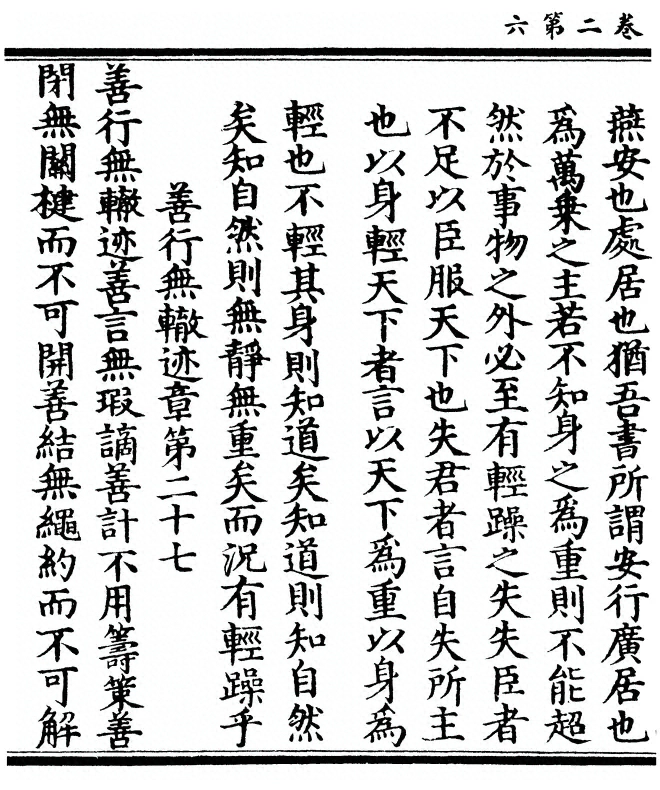 卷二第六
燕安也處居也猶吾書所謂安行廣居也
為萬乗之主若不知身之為重則不能超
然於事物之外必至有輕躁之失失臣者
不足以臣服天下也失君者言自失所主
也以身輕天下者言以天下為重以身為
輕也不輕其身則知道矣知道則知自然
矣知自然則無靜無重矣而況有輕躁乎
善行無轍迹章第二十七
善行無轍迹善言無瑕謫善計不用籌策善
閉無關楗而不可開善結無繩約而不可解